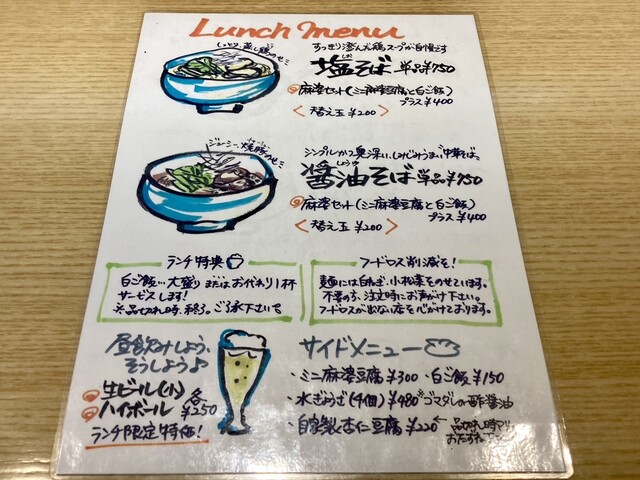 Lunch menu
しっとり、蒸し鶏のせ
すっきり澄んだ鶏スープが自慢です
塩そば 単品¥750
しお
麻婆セット(ミニ麻婆豆腐と白ご飯)
プラス¥400
<替え玉 ¥200>
ジューシー、焼豚のせ
シンプルかつ奥深い、しみじみうまい“中華そば”。
醤油そば 単品¥750
しょうゆ
麻婆セット(ミニ麻婆豆腐と白ご飯)
プラス¥400
<替え玉 ¥200>
ランチ特典
白ご飯…大盛りまたはおかわり1杯
サービスします!
※品切れ時、終了。ご了承下さい
フードロス削減を!
麺には白ねぎ、小松菜をのせています。
不要の方、注文時にお声がけ下さい。
フードロスが出ない店を心がけております。
昼飲みしよう、
そうしよう♪
生ビール(小)
ハイボール
各¥250
ランチ限定特価!
サイドメニュー
・ミニ麻婆豆腐 ¥300 ・白ご飯 ¥150
・水ぎょうざ(4個) ¥480 ※ゴマダレor酢醤油
・自家製杏仁豆腐 ¥220
品切れ時アリ